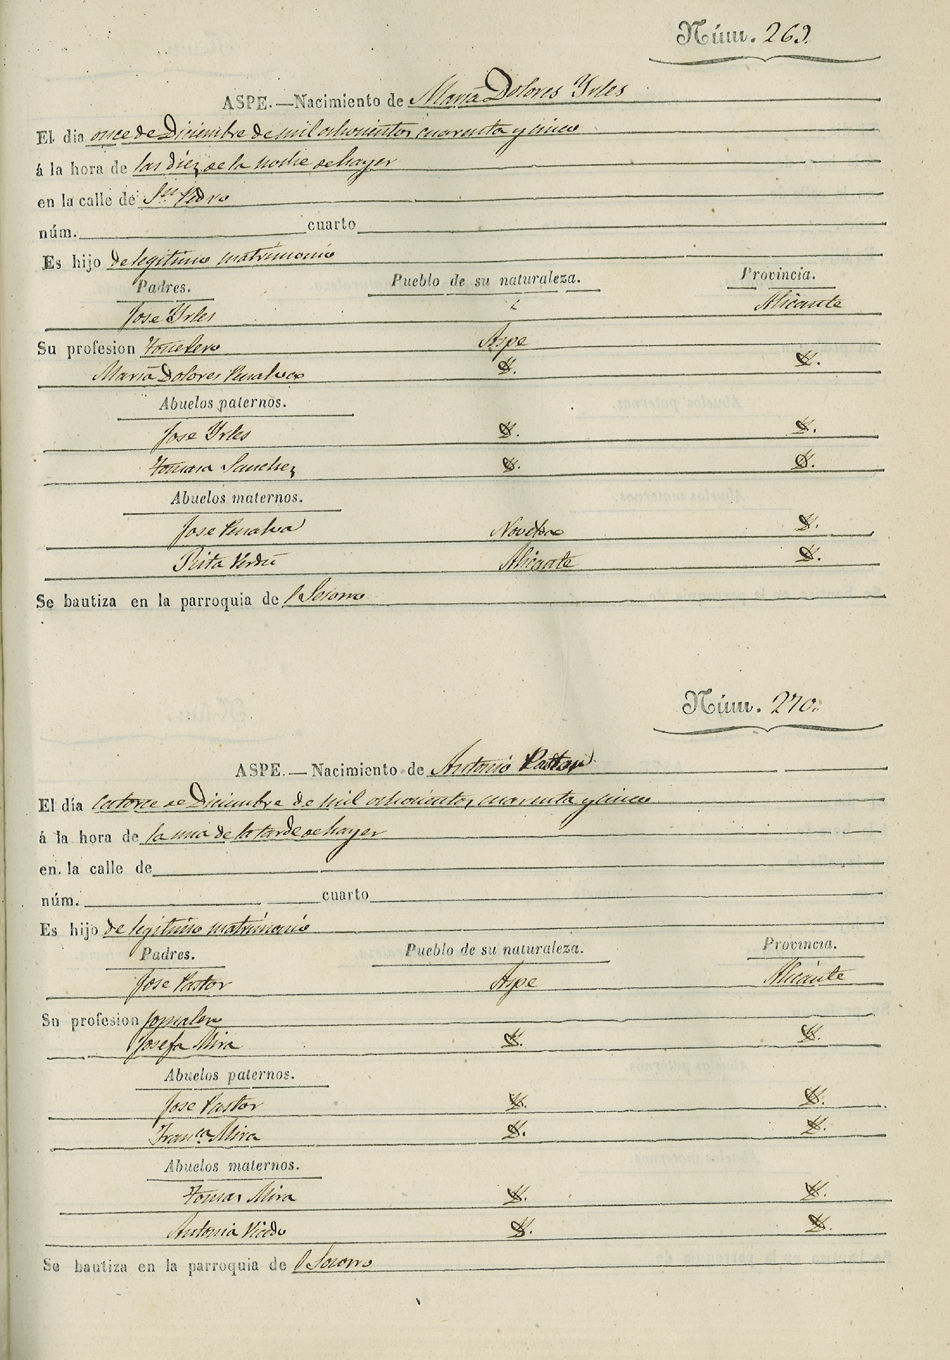 Núm. 269.
ASPE.—Nacimiento de Maria Dolores Yrles
El dia once de Diciembre de mil ochocientos cuarenta y cinco
á la hora de las diez de la noche de hayer
en la calle de Sn Pedro
núm. cuarto
Es hijo de legitimo matrimonio
Padres. Pueblo de su naturaleza. Provincia.
Jose Yrles Alicante
Su profesion Tonelero Aspe
Maria Dolores Penalva Y. Y.
Abuelos paternos.
Jose Yrles Y. Y.
Tomasa Sanchez Y. Y.
Abuelos maternos.
Jose Penalva Novelda Y.
Rita Verdú Alicante Y.
Se bautiza en la parroquia de l Socorro
Núm. 270.
ASPE.—Nacimiento de Antonio Pastor
El día catorce de Diciembre de mil ochocientos cuarenta y cinco
á la hora de la una de la tarde de hayer
en la calle de
núm. cuarto
Es hijo de legitimo matrimonio
Padres. Pueblo de su naturaleza. Provincia.
Jose Pastor Aspe Alicante
Su profesion Jornalero
Josefa Mira Y. Y.
Abuelos paternos.
Jose Pastor Y. Y.
Franca Mira Y. Y.
Abuelos maternos.
Tomas Mira Y. Y.
Antonia Vicedo Y. Y.
Se bautiza en la parroquia de l Socorro